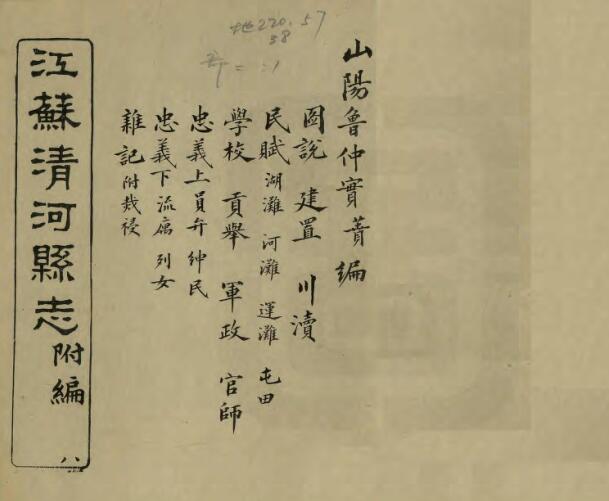 山陽魯仲實蕡編
圖說 建置 川瀆
民賦 湖灘 河灘 運灘 屯田
學校 貢舉 軍政 官師
忠義上 員弁 紳民
忠義下 流寓 列女
雜記 附烖祲
江蘇清河縣志 附編 八
地220.57
38